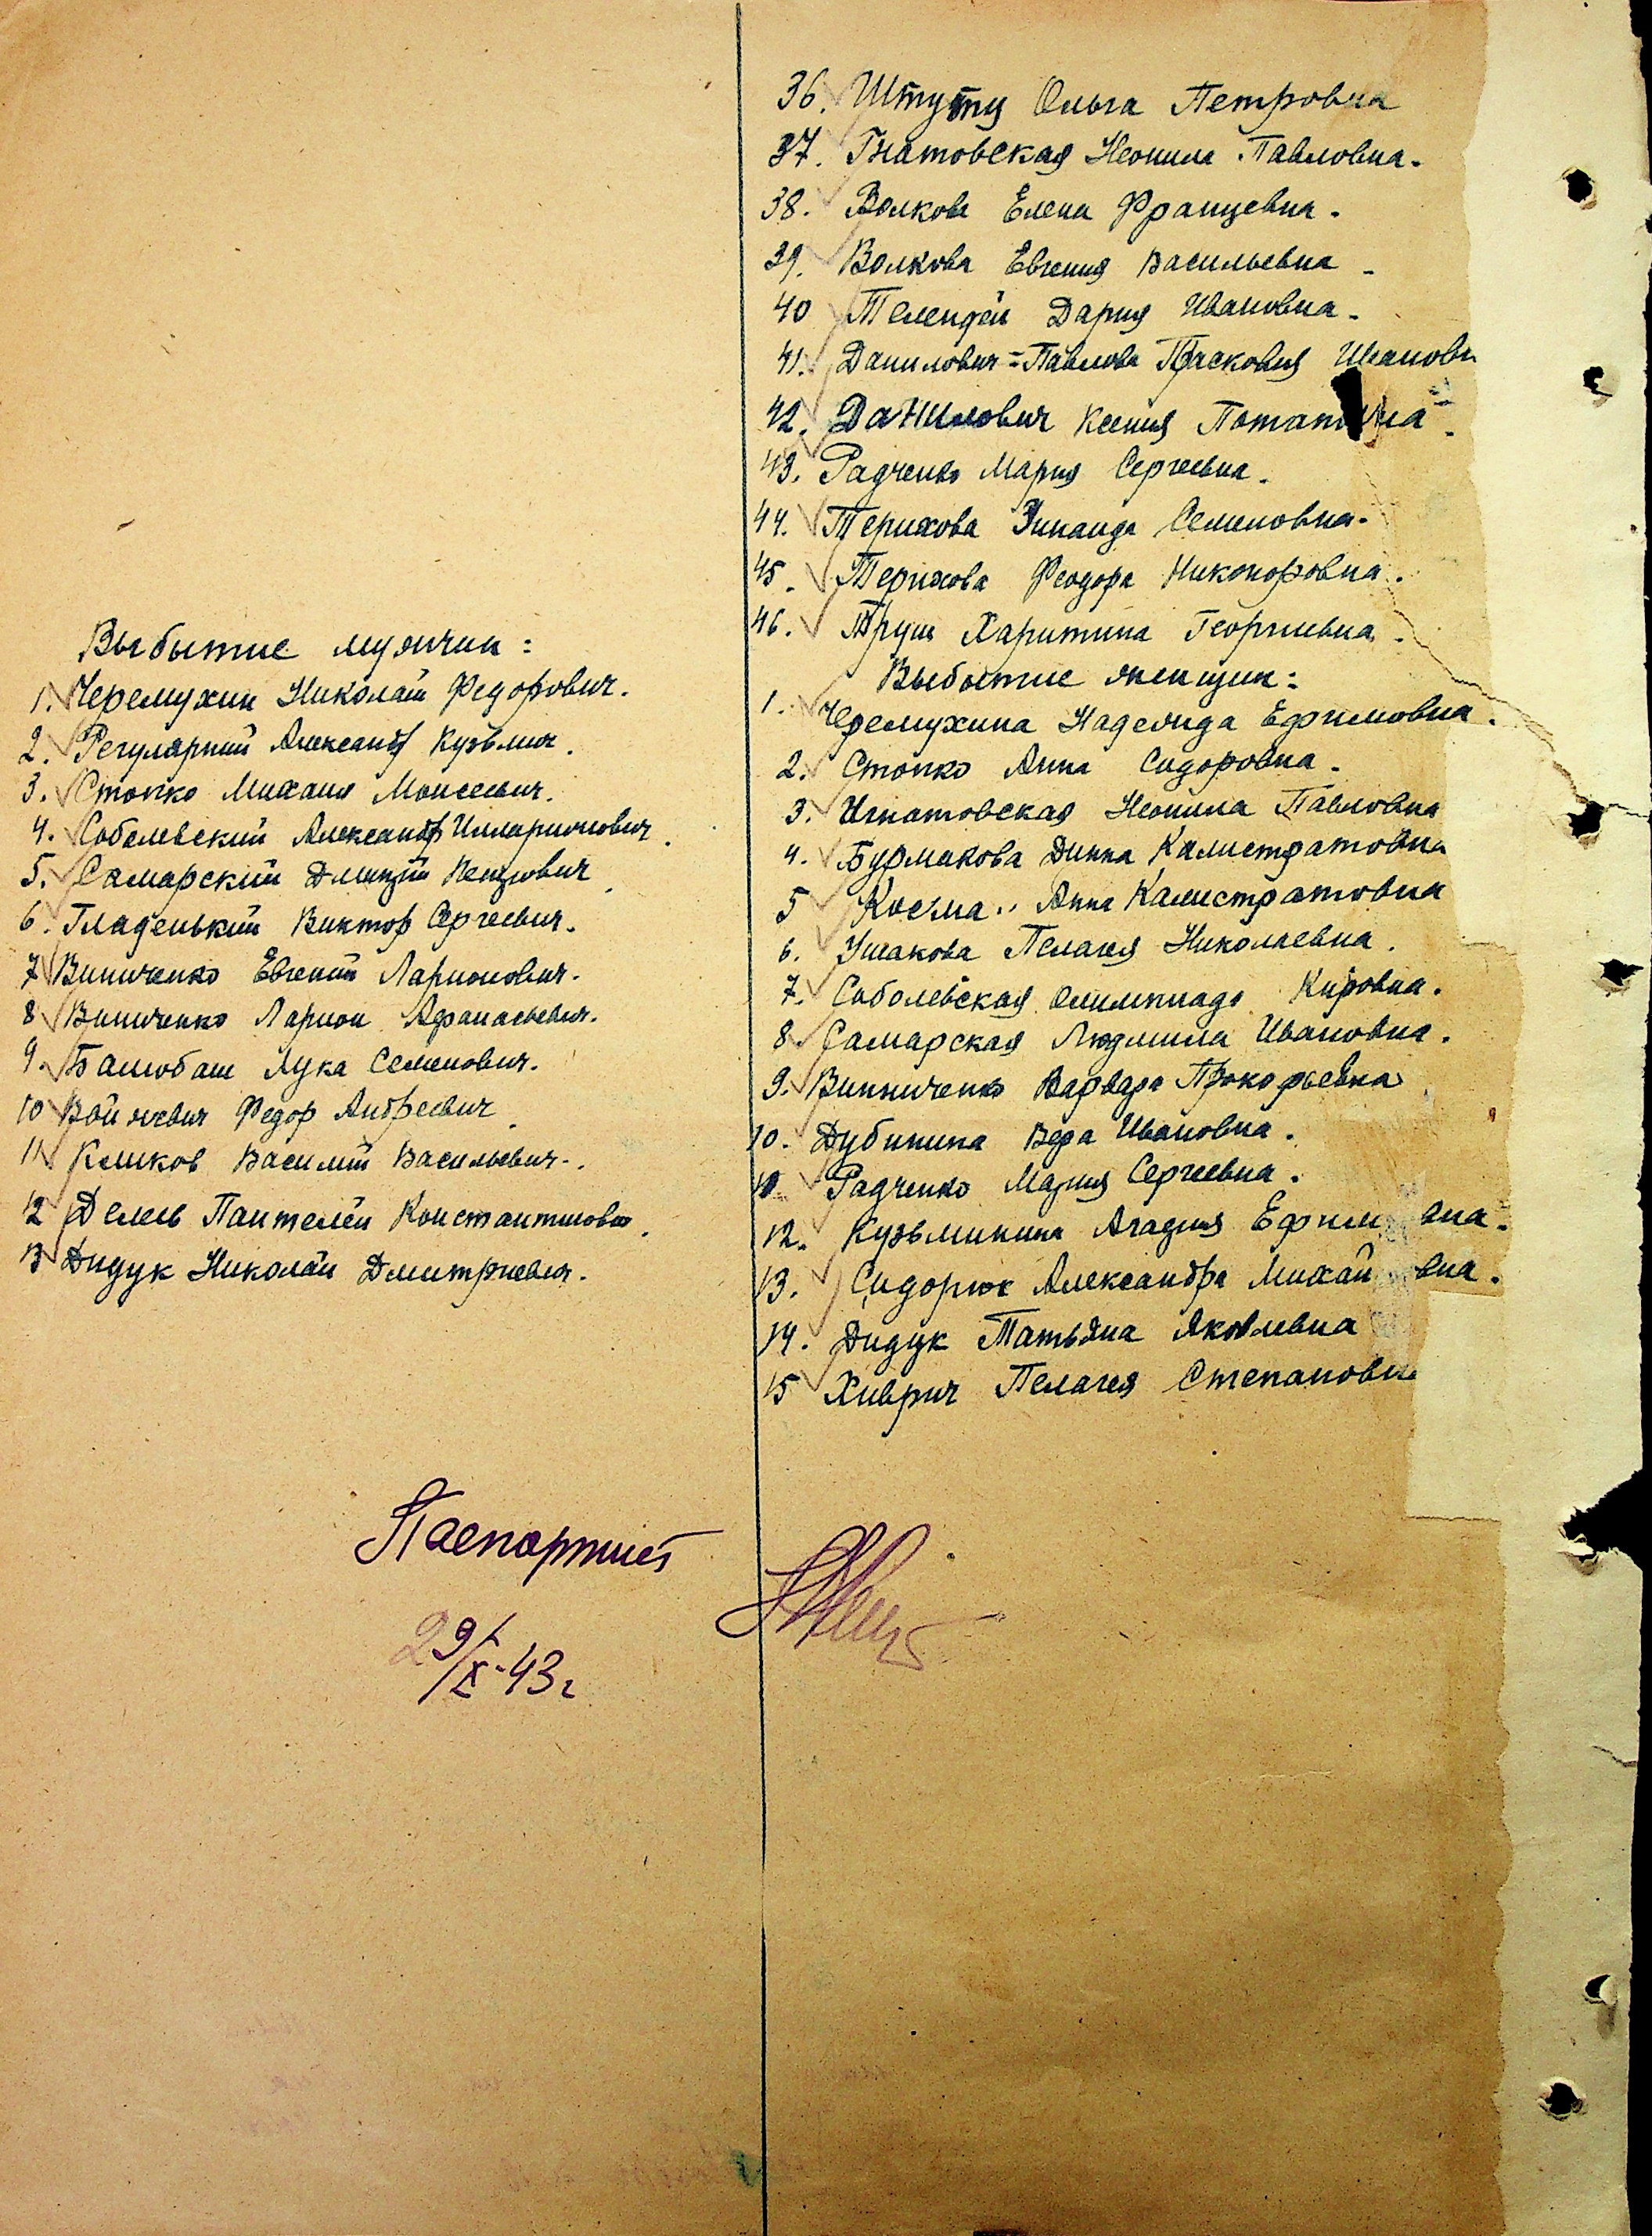 Выбытие мужчин:
1. Черемухин Николай Федорович.
2. Регулярный Александр Кузьмич.
3. Стопко Михаил Моисеевич.
4. Соболевский Александр Илларионович.
5. Самарский Дмитрий Петрович.
6. Гладенький Виктор Сергеевич.
7 Виниченко Евгений Ларионович.
8 Виниченко Ларион Афанасьевич.
9. Башобаш Лука Семенович.
10 Войнкевич Федор Андреевич.
11 Климков Василий Васильевич.
12 Делев Пантелей Константинович.
13 Дидук Николай Дмитриевич.
Паспортист
29/X-43 г
36. Ольга Петровна
37. Гнатовская Неонила Павловна.
38. Волкова Елена Францевна.
39. Волкова Евгения Васильевна
40 Телендей Дария Ивановна.
41. Данилович=Павлова Прасковия Ивановн
42. Данилович Ксения
43. Радченко Мария Сергеевна.
44. Терихова Зинаида Семеновна.
45. Терихова Феодора Никоноровна.
46. Труш Харитина Георгиевна.
Выбытие женщин:
1. Черемухина Надежда Ефимовна.
2. Стопко Анна Сидоровна.
3. Игнатовская Неонила Павловна
4. Бурмакова Динна Калистратовна
5 Косма Анна Калистратовна
6. Ушакова Пелагея Николаевна.
7. Соболевская Олимпиада Кировна.
8 Самарская Людмила Ивановна.
9. Винниченко Варвара Прокофьевна
10. Дубинина Вера Ивановна.
10. Радченко Мария Сергеевна.
12. Кузьминина Агадия Ефим вна.
13. Сидорюк Александра Михай вна.
14. Дидук Татьяна Яковлевна
15 Хиврич Пелагея Степановн